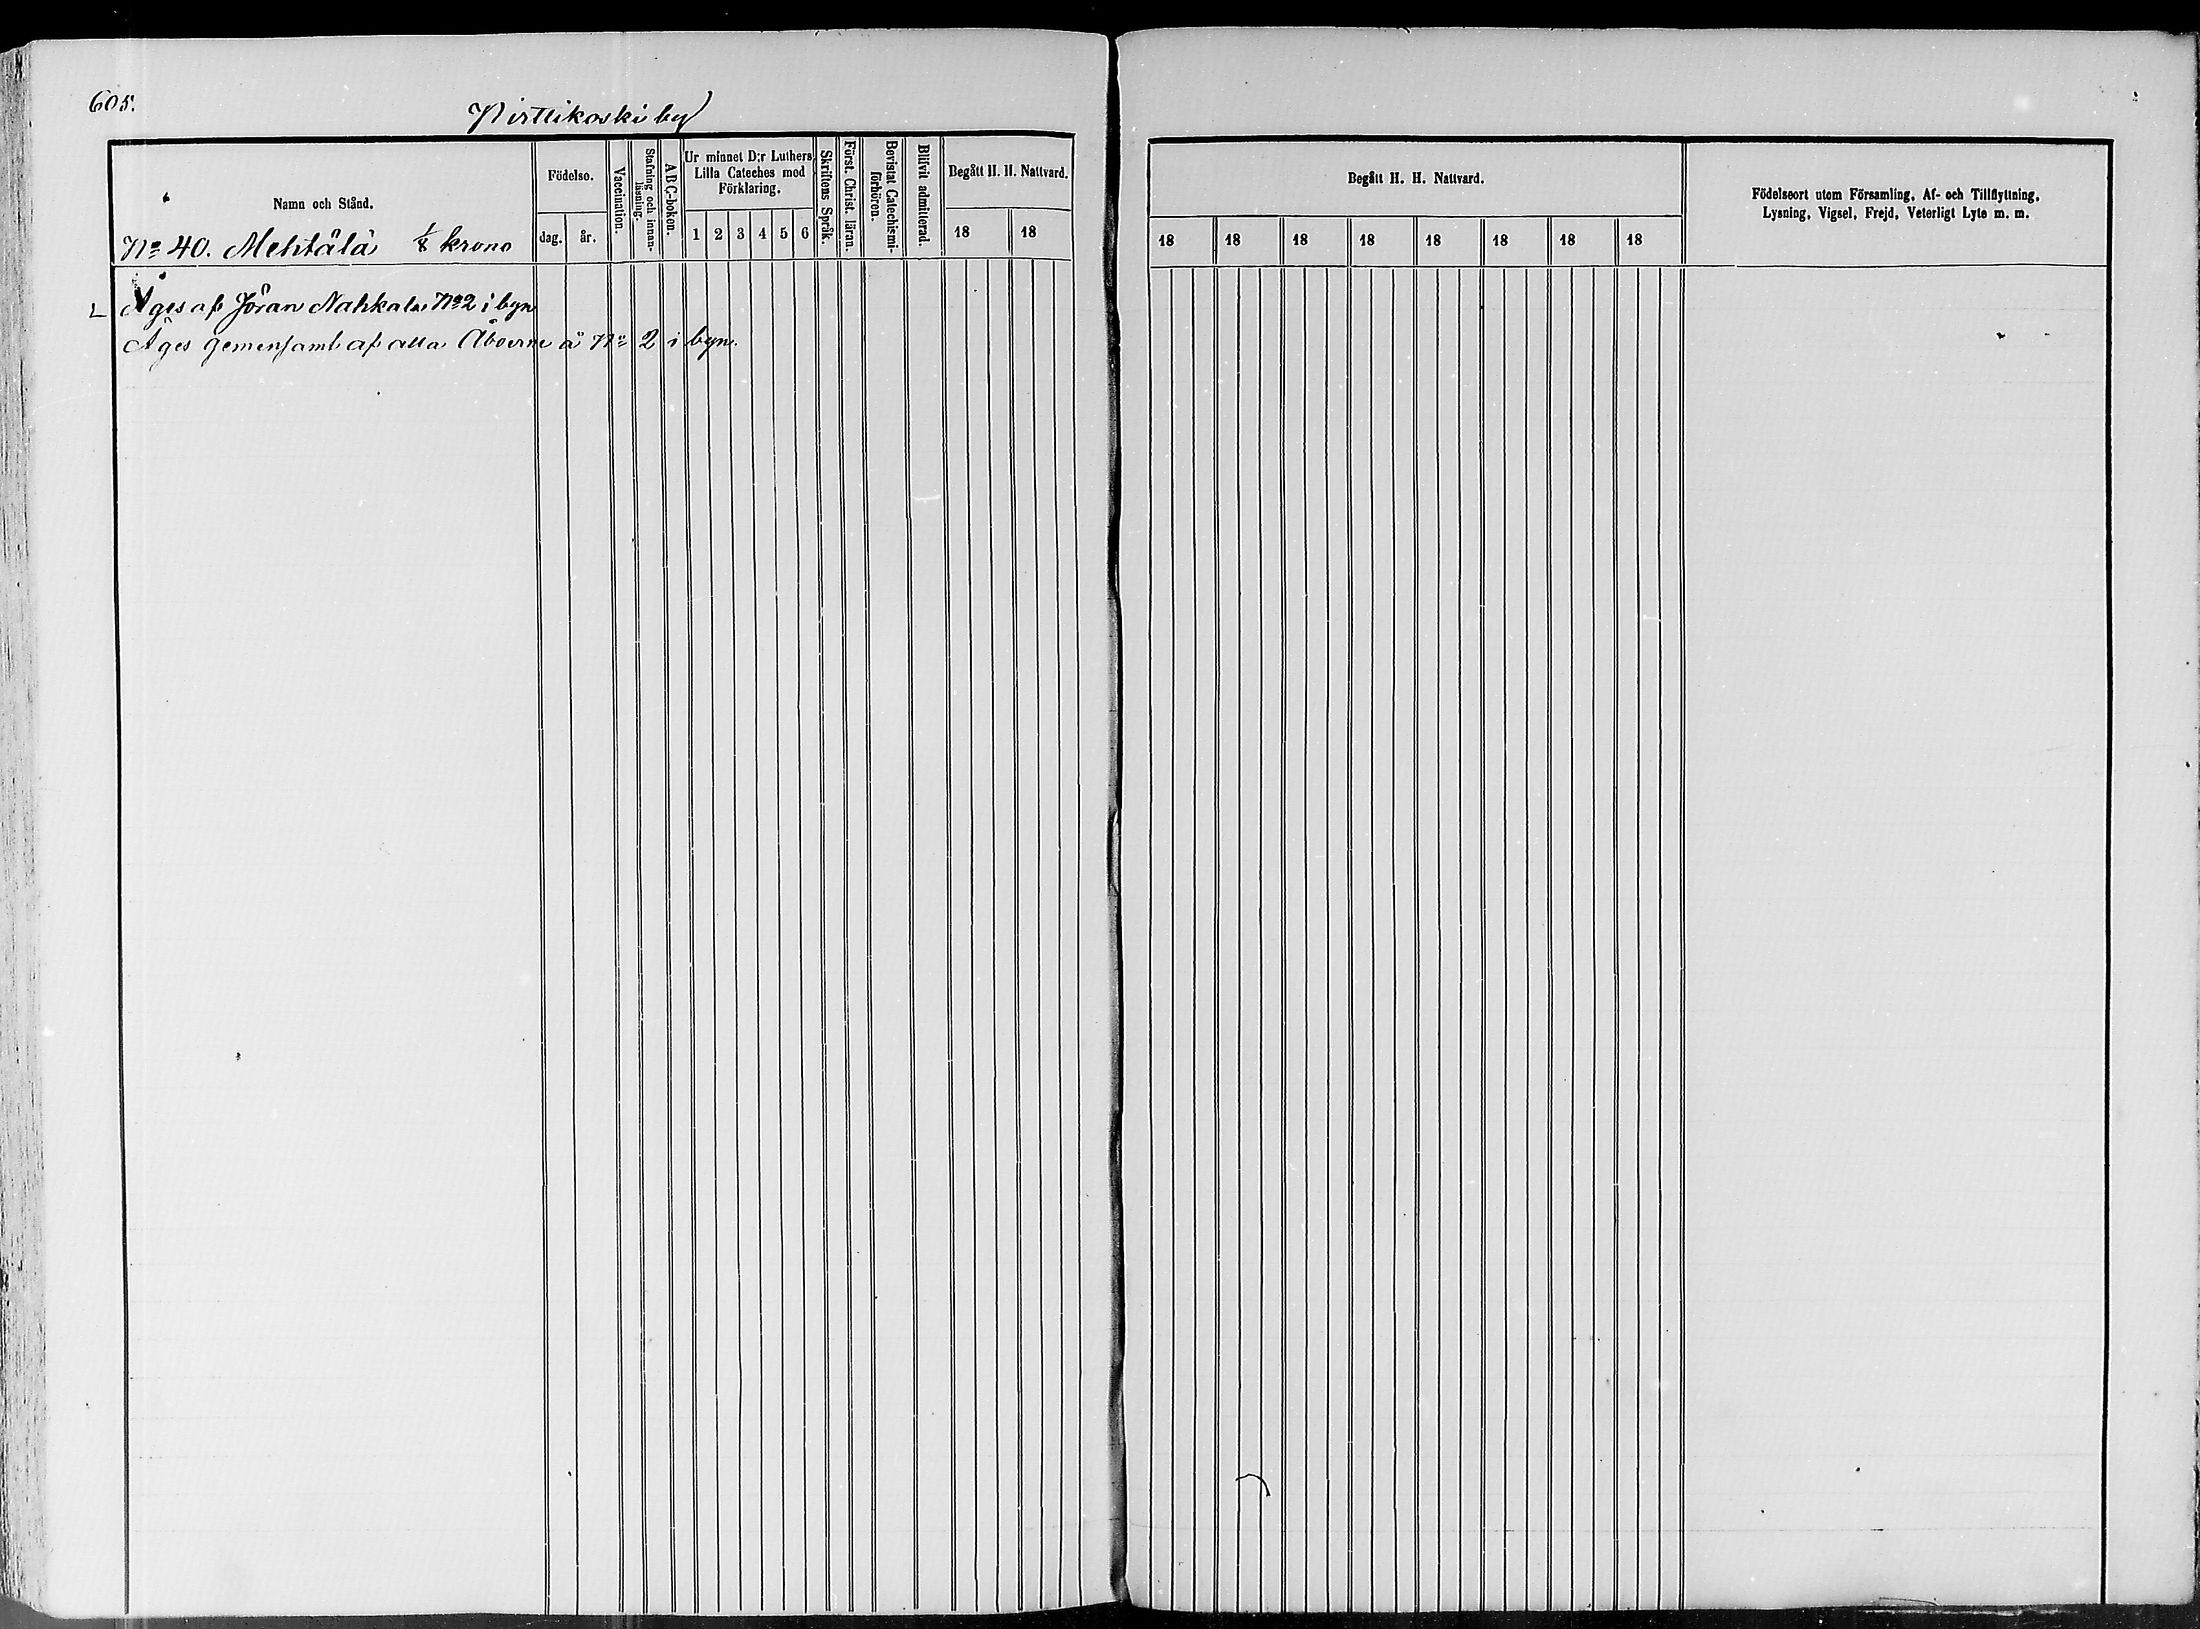 605.
Pirttikoski by
Namn och Stånd.
Födelse.
dag.
år.
Vaccination.
Stafning och innan-
läsning.
ABC-boken.
Ur minnet D:r Luthers
Lilla Cateches med
Förklaring.
1 2 3 4 5 6
Skriftens Språk.
Först. Christ. läran.
Bevistat Catechismi-
förhören.
Blifvit admitterad.
Begått H. H. Nattvard.
18 18
No 40. Mehtälä 1/8 krono
L Äges af Jöran Nahkala No 2 i byn
Äges gemensamt af alla Åboerne å No 2 i byn.
Begått H. H. Nattvard.
18 18 18 18 18 18 18 18
Födelseort utom Församling, Af- och Tillflyttning,
Lysning, Vigsel, Frejd, Veterligt Lyte m. m.